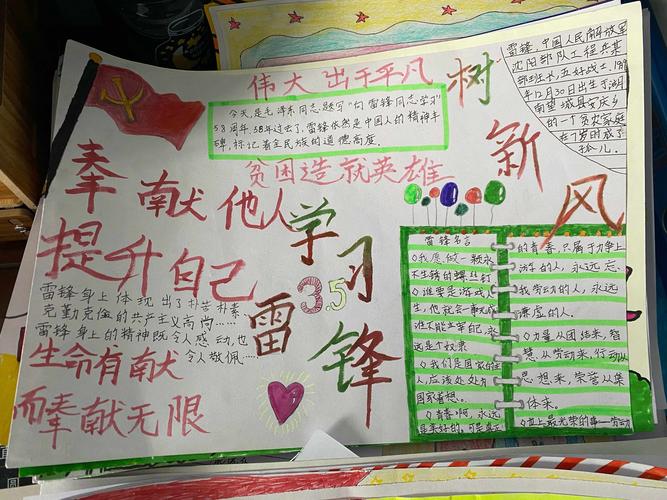 伟大出于平凡
今天是毛泽东同志题写“向雷锋同志学习”
58周年,58年过去了,雷锋依然是中国人的精神丰
碑,标记着全民族的道德高度。
贫困造就英雄
树
新
风
雷锋,中国人民解放军
沈阳部队工程兵某
部班长,五好战士,
年12月30日出生于湖
南望城县安庆乡
的一个贫农家庭
在7岁时成了
孤儿.
奉献他人
提升自己
学习
3.5
雷锋
雷锋身上体现出了朴苦朴素、
克勤克俭的共产主义高尚……
雷锋身上的精神既令人感动,也
令人敬佩……
生命有献
而奉献无限
雷锋名言
◇我愿做一颗永
不生锈的螺丝钉
◇谁要是游戏人
生,他就会一事无成
谁不能主宰自己,永
远是个奴隶
◇我们是国家的主
人,应该处处为
国家着想。
◇青春啊,永远
是美好的,可是真正
的青春,只属于力争上
游的人,永远忘
我劳动的人,永远
谦虚的人。
◇力量从团结来,智
慧从劳动来,行动从
思想来,荣誉从集
体来。
◇世上最光荣的事—劳动